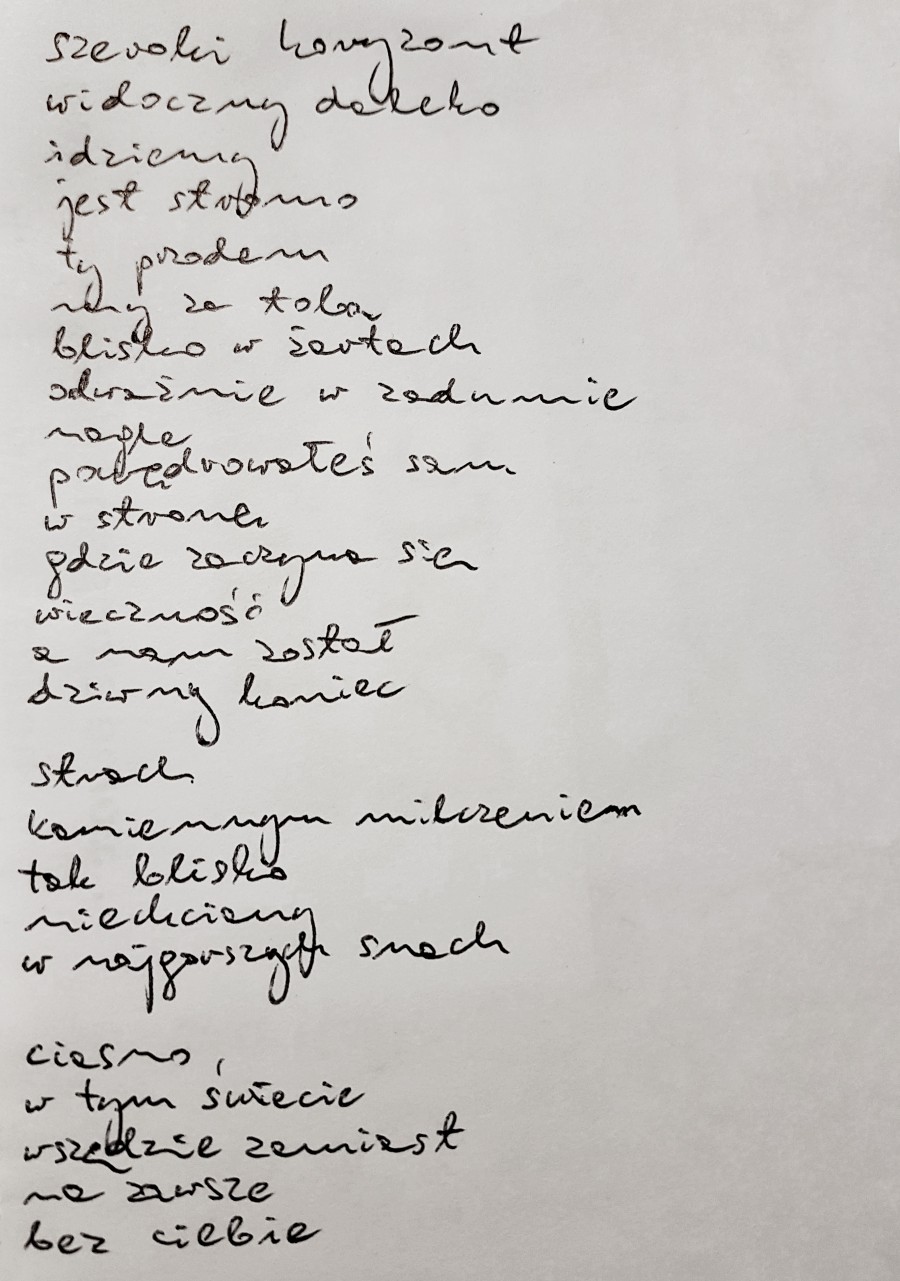 szeroki horyzont
widoczny daleko
idziemy
jest stromo
ty przodem
my za tobą
blisko w żartach
odważnie w zadumie
nagle
powędrowałeś sam
w stronę
gdzie zaczyna się
wieczność
a nam został
dziwny koniec
strach
kamiennym milczeniem
tak blisko
niechciany
w najgorszych snach
ciasno
w tym świecie
wszędzie zamiast
na zawsze
bez ciebie